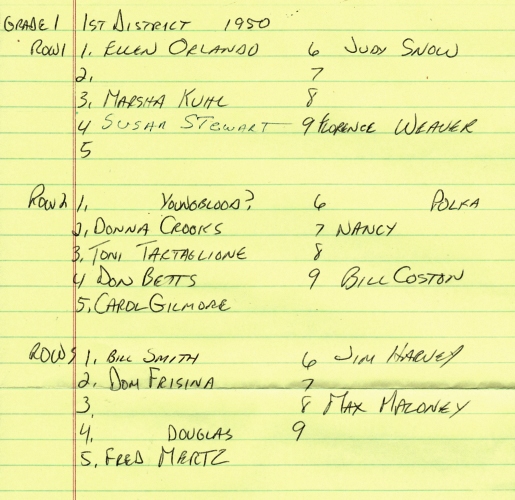 GRADE 1 1ST DISTRICT 1950
ROW 1 1. ELLEN ORLANDO 6 JUDY SNOW
2. 7
3. MARSHA KUHL 8
4 SUSAN STEWART 9 FLORENCE WEAVER
5
ROW 2 1. YOUNGBLOOD? 6 POLKA
2. DONNA CROOKS 7 NANCY
3. TONI TARTAGLIONE 8
4 DON BETTS 9 BILL COSTON
5. CAROL GILMORE
ROW 1. BILL SMITH 6 JIM HARVEY
2. DOM FRISINA 7
3. 8 MAX MALONEY
4. DOUGLAS 9
5. FRED MERTZ